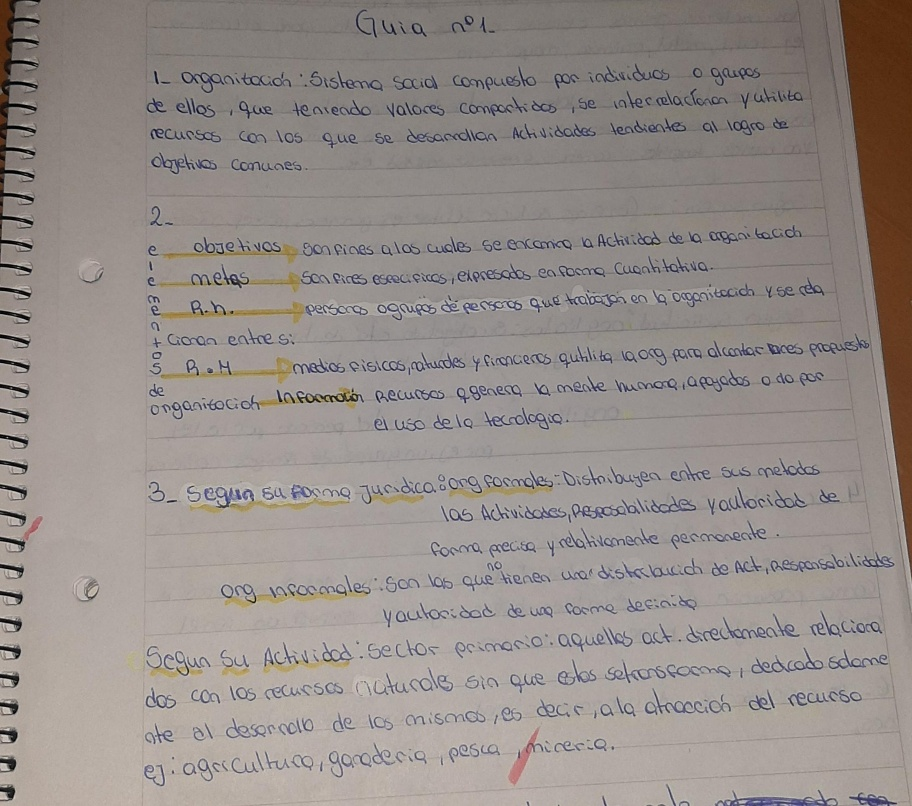 Guia nº1
1- organitacion: Sistema social compuesto por individuos o grupos
de ellos, que teniendo valores compartidos, se interrelacionan y utilita
recursos con los que se desarrollan Actividades tendientes al logro de
objetivos comunes.
2-
elementos de organitacion
objetivos son fines a los cuales se encamina la Actividad de la organitacion
metas son fines especificos, expresados en forma cuantitativa.
R.h. personas o grupos de personas que trabajan en la organitacion y se rela
cionan entre si
R.M medios fisicos, naturales y financieros q utilita la org para alcantar propuesto
Informacion Recursos q genera la mente humana, apoyados o do por
el uso de la tecnologia.
3- Segun su forma Juridica: org formales: Distribuyen entre sus metodos
las Actividades, Resposabilidades y autoridad de
forma precisa y relativamente permanente.
org informales: son las que no tienen una distribucion de Act, Responsabilidades
y autoridad de una forma definida
Segun Su Actividad: Sector primario: aquellas act. directamente relaciona
dos con los recursos naturales sin que estos se transforme, dedicado solame
nte al desarrollo de los mismos, es decir, a la atraccion del recurso
ej: agricultura, ganaderia, pesca, mineria.